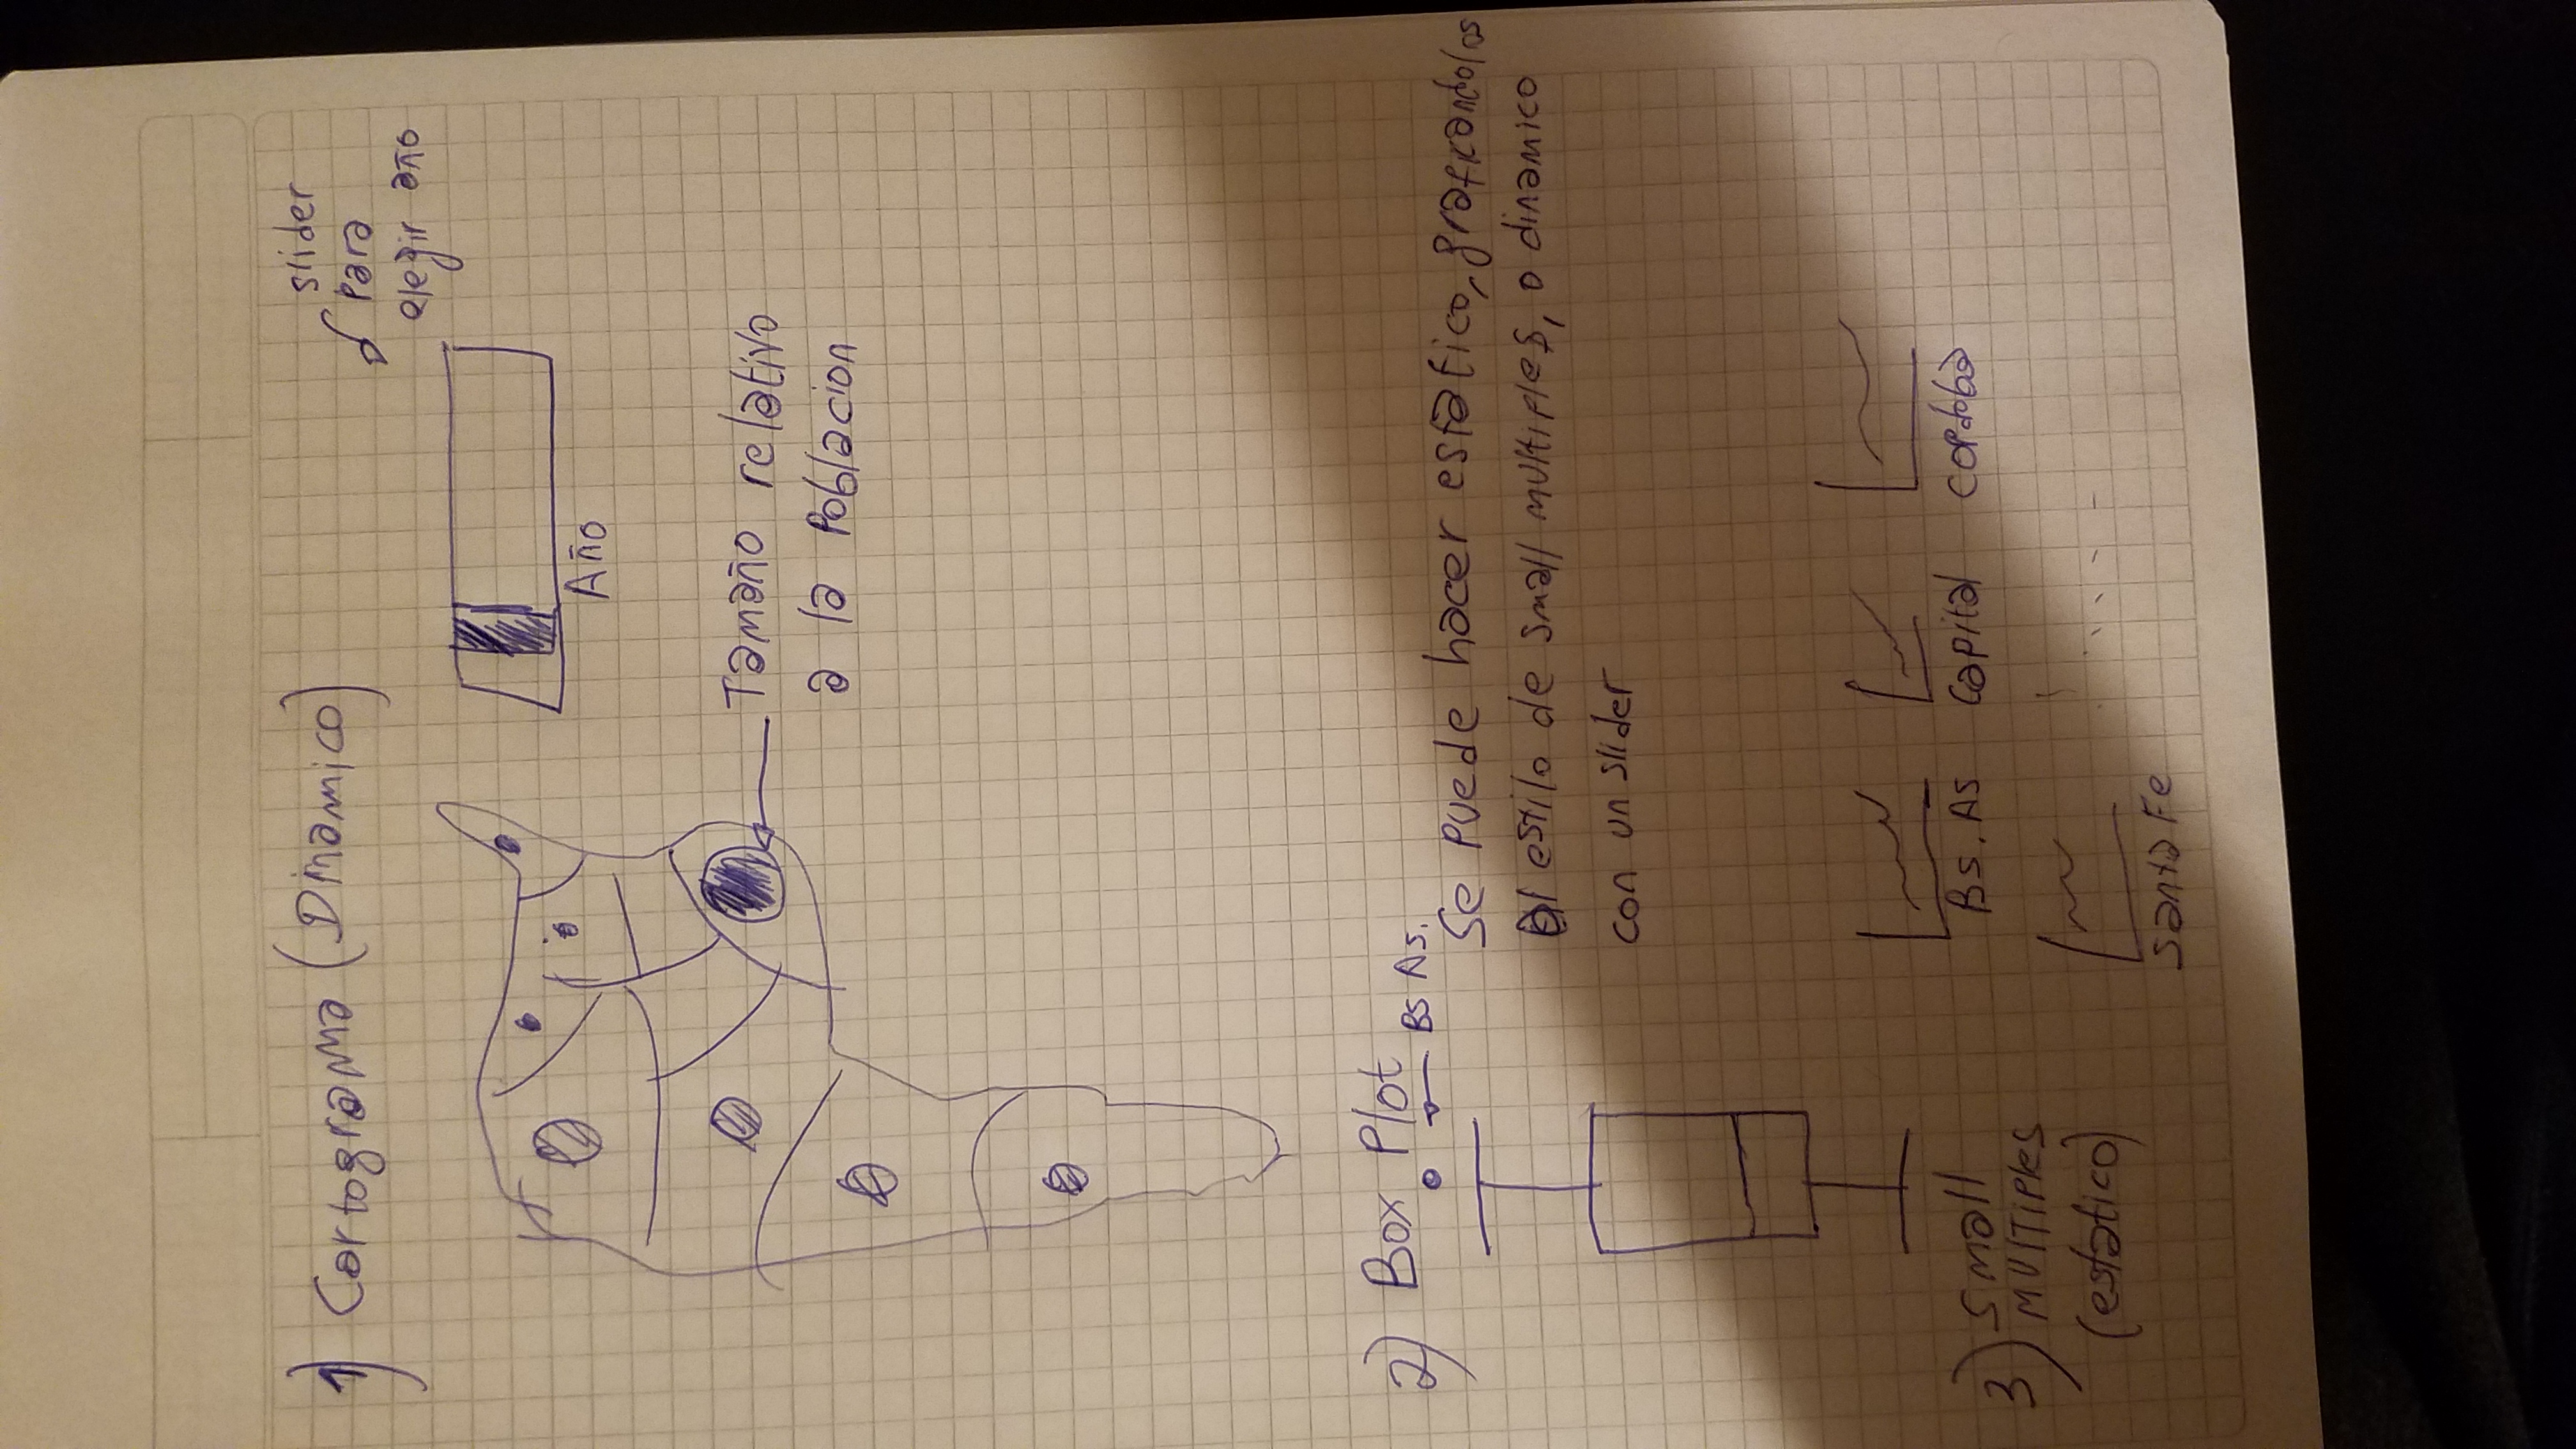 1) Cartograma (Dinamico)
slider
para
elegir año
Año
Tamaño relativo
a la Poblacion
2) Box Plot
Bs As.
Se puede hacer estatico, graficandolos
al estilo de small multiples, o dinamico
con un slider
3) Small
multiples
(estatico)
Bs. As
Capital
Cordoba
Santa Fe